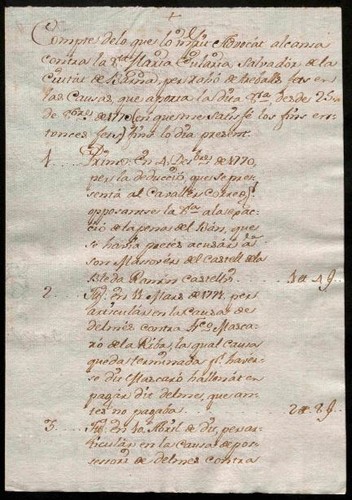 Compte de lo que lo magch Advocat alcansa
contra la Sra Maria Eularia Salvador de la
Ciutat de, per rahó de treballs fets en
las Causas, que aporta la dita Sra desde 25
de de 1770 (en que me satisfé los fins en-
tonces fets) fins lo dia present.
1. Primo: en 4 Desbre de 1770,
per la deducció, que se pre-
sentá al Cavaller Corregr
opposantse la Sra a la
ció de la pena del Ban, que
se havia pretes acusar á
son Masover del Castell de la
Ramon Castells
2. Itt. en 11 Mars de 1771, per
articular en la Causa de
delmes contra Franco Mascaró
de la Riba, la qual Causa
queda terminada p. haver-
se dit Mascaró hallanat en
pagar dit delme, que an-
tes no pagaba.
3. Itt. en 10 Abril de dit, per ar-
ticular en la Causa de pos-
sessori de delmes contra